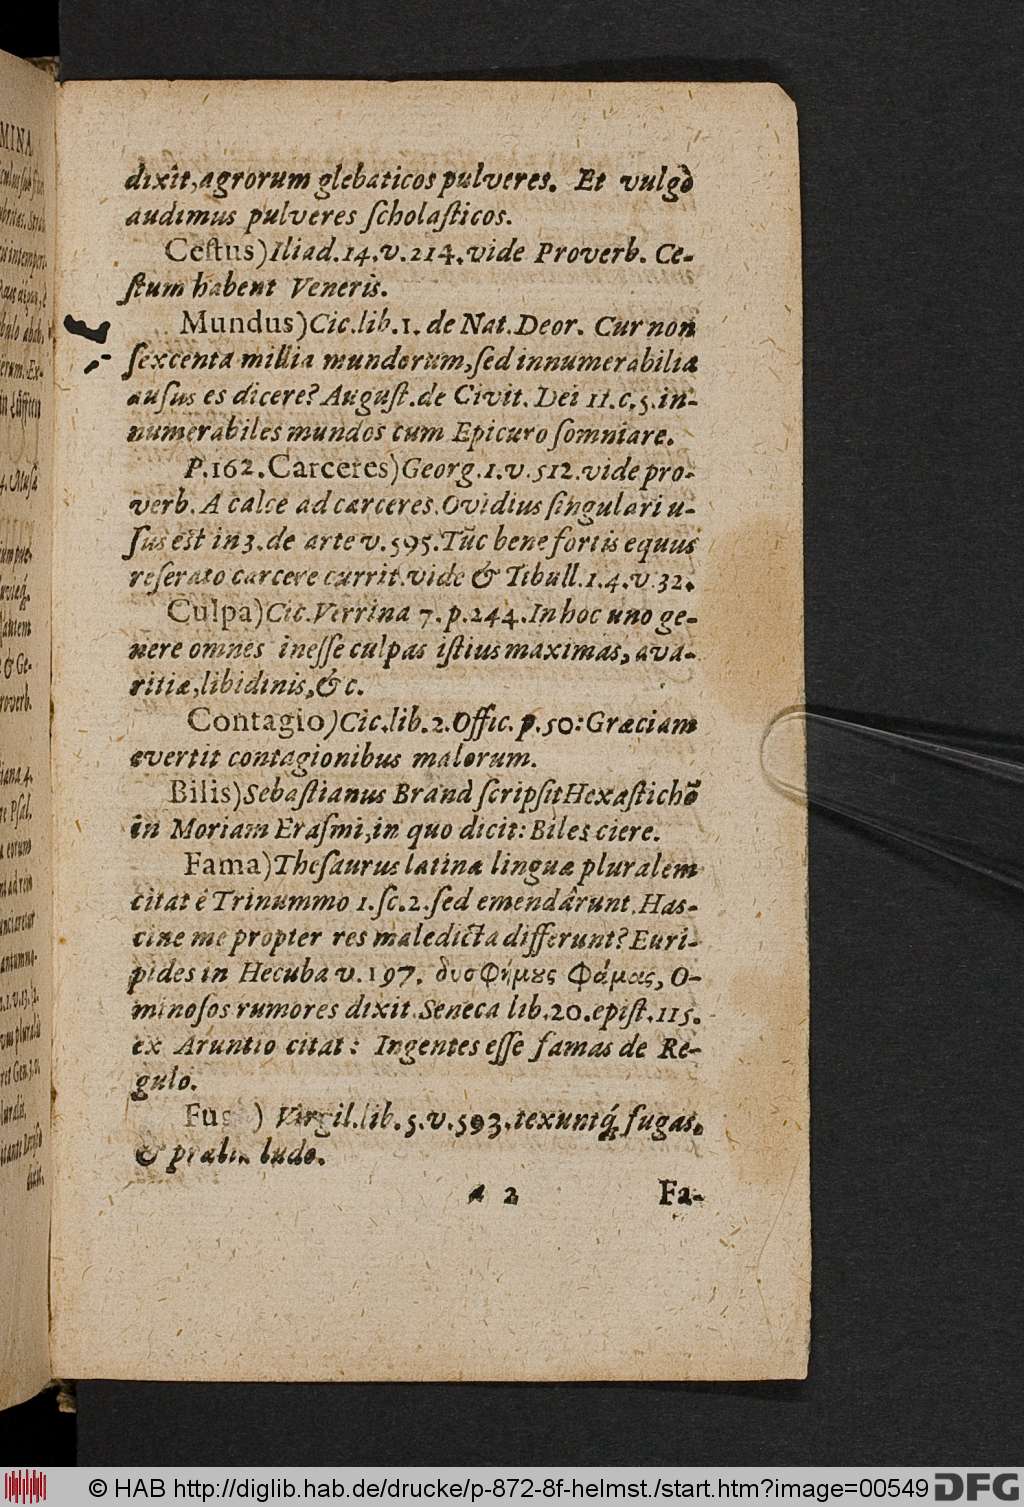 dixît, agrorum glebaticos pulveres. Et vulgò
audimus pulveres ſcholaſticos.
Ceſtus) Iliad. 14. v. 214. vide Proverb. Ce-
ſtum habent Veneris.
Mundus) Cic. lib. 1. de Nat. Deor. Cur non
ſexcenta millia mundorum, ſed innumerabilia
auſus es dicere? Auguſt. de Civit. Dei 11. c. 5. in-
numerabiles mundos cum Epicuro ſomniare.
P. 162. Carceres) Georg. 1. v. 512. vide pro-
verb. A calce ad carceres. Ovidius ſingulari u-
ſus eſt in 3. de arte v. 595. Tũc bene fortis equus
reſerato carcere currit. vide & Tibull. 1. 4. v. 32.
Culpa) Cic. Verrina 7. p. 244. In hoc uno ge-
nere omnes ineſſe culpas iſtius maximas, ava-
ritiæ, libidinis, &c.
Contagio) Cic. lib. 2. Offic. p. 50: Græciam
evertit contagionibus malorum.
Bilis) Sebaſtianus Brand ſcripſit Hexaſtichõ
in Moriam Eraſmi, in quo dicit: Biles ciere.
Fama) Theſaurus latinæ linguæ pluralem
citat è Trinummo 1. ſc. 2. ſed emendârunt. Has-
cine me propter res maledicta differunt? Euri-
pides in Hecuba v. 197. δυσφήμȣς φάμας, O-
minoſos rumores dixit. Seneca lib. 20. epiſt. 115.
ex Aruntio citat: Ingentes eſſe famas de Re-
gulo.
Virgil. lib. 5. v. 593. texuntq́; fugas,
& prælia ludo.
a 2 Fa-
© HAB http://diglib.hab.de/drucke/p-872-8f-helmst./start.htm?image=00549 DFG